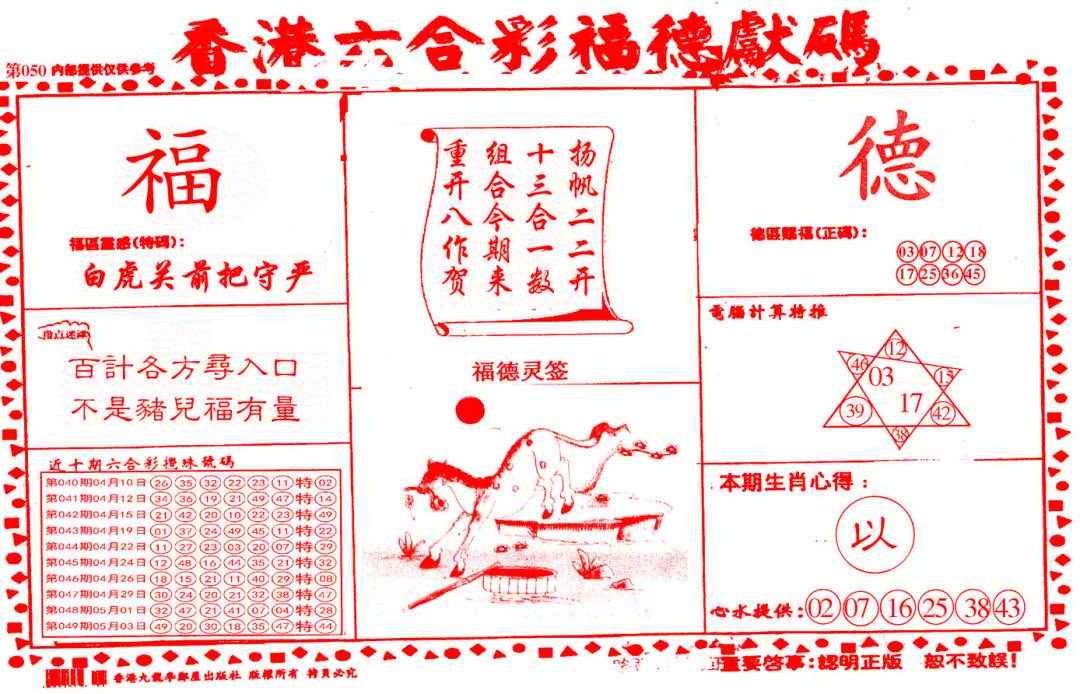 香港六合彩福德獻碼
第050 内部提供仅供参考
福
福區靈感(特碼):
白虎关前把守严
指点迷津
百計各方尋入口
不是豬兒福有量
近十期六合彩攪珠號碼
第040期04月10日 26 35 32 22 23 11 特 02
第041期04月12日 34 36 19 21 49 47 特 14
第042期04月15日 21 42 20 10 22 23 特 49
第043期04月19日 01 37 24 49 45 11 特 22
第044期04月22日 11 27 23 03 20 07 特 29
第045期04月24日 12 48 16 44 35 21 特 32
第046期04月26日 18 15 21 11 40 29 特 08
第047期04月29日 30 24 20 21 32 38 特 47
第048期05月01日 32 47 21 41 07 04 特 28
第049期05月03日 49 20 30 18 35 47 特 44
扬帆二二开
十三合一数
组合今期来
重开八作贺
福德灵签
德
德區賜福(正碼):
03 07 12 18
17 25 36 45
電腦計算特推
12
46 03 15
39 17 42
38
本期生肖心得:
以
心水提供: 02 07 16 25 38 43
重要啓事:認明正版 恕不致誤!
出版社 版權所有